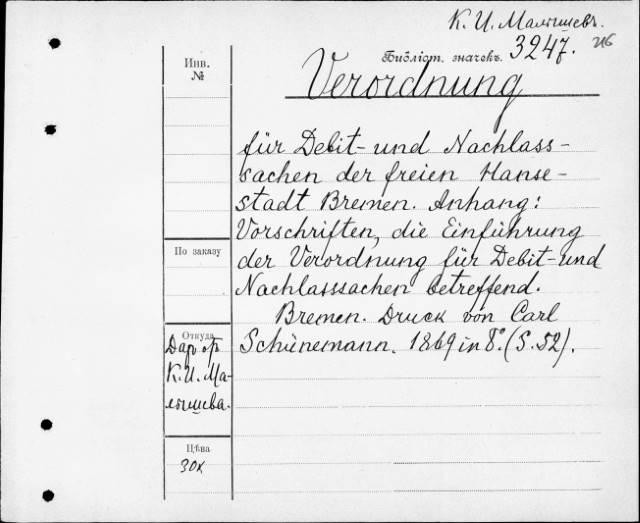 К. И. Малышевъ.
Библіот. значокъ. 3247. 216
Инв.
№
Verordnung
für Debit- und Nachlass-
sachen der freien Hanse-
stadt Bremen. Anhang:
Vorschriften, die Einführung
der Verordnung für Debit- und
Nachlasssachen betreffend.
Bremen. Druck von Carl
Schünemann. 1869 in 8°. (S. 52).
По заказу
Откуда
Даръ отъ
К. И. Ма-
лышева.
Цѣна
30к